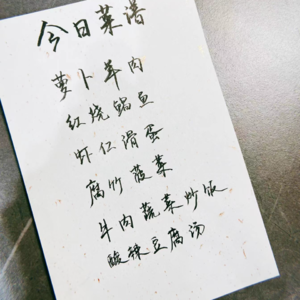 今日菜谱
萝卜羊肉
红烧鳊鱼
虾仁滑蛋
腐竹菠菜
牛肉蔬菜炒饭
酸辣豆腐汤